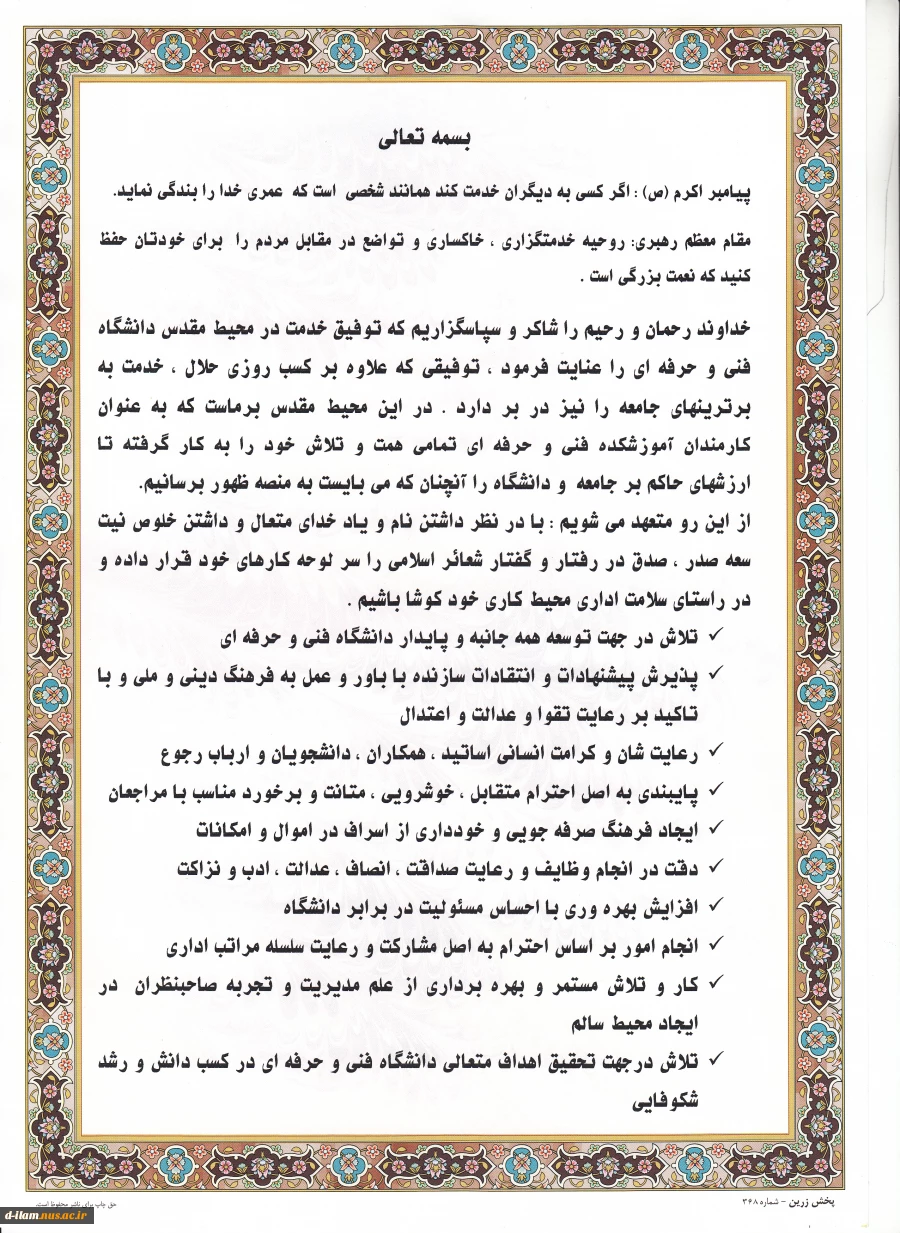 بسمه تعالی
پیامبر اکرم (ص) : اگر کسی به دیگران خدمت کند همانند شخصی است که عمری خدا را بندگی نماید.
مقام معظم رهبری: روحیه خدمتگزاری ، خاکساری و تواضع در مقابل مردم را برای خودتان حفظ
کنید که نعمت بزرگی است .
خداوند رحمان و رحیم را شاکر و سپاسگزاریم که توفیق خدمت در محیط مقدس دانشگاه
فنی و حرفه ای را عنایت فرمود ، توفیقی که علاوه بر کسب روزی حلال ، خدمت به
برترینهای جامعه را نیز در بر دارد . در این محیط مقدس برماست که به عنوان
کارمندان آموزشکده فنی و حرفه ای تمامی همت و تلاش خود را به کار گرفته تا
ارزشهای حاکم بر جامعه و دانشگاه را آنچنان که می بایست به منصه ظهور برسانیم.
از این رو متعهد می شویم : با در نظر داشتن نام و یاد خدای متعال و داشتن خلوص نیت
سعه صدر ، صدق در رفتار و گفتار شعائر اسلامی را سر لوحه کارهای خود قرار داده و
در راستای سلامت اداری محیط کاری خود کوشا باشیم .
✓ تلاش در جهت توسعه همه جانبه و پایدار دانشگاه فنی و حرفه ای
✓ پذیرش پیشنهادات و انتقادات سازنده با باور و عمل به فرهنگ دینی و ملی و با
تاکید بر رعایت تقوا و عدالت و اعتدال
✓ رعایت شان و کرامت انسانی اساتید ، همکاران ، دانشجویان و ارباب رجوع
✓ پایبندی به اصل احترام متقابل ، خوشرویی ، متانت و برخورد مناسب با مراجعان
✓ ایجاد فرهنگ صرفه جویی و خودداری از اسراف در اموال و امکانات
✓ دقت در انجام وظایف و رعایت صداقت ، انصاف ، عدالت ، ادب و نزاکت
✓ افزایش بهره وری با احساس مسئولیت در برابر دانشگاه
✓ انجام امور بر اساس احترام به اصل مشارکت و رعایت سلسله مراتب اداری
✓ کار و تلاش مستمر و بهره برداری از علم مدیریت و تجربه صاحبنظران در
ایجاد محیط سالم
✓ تلاش درجهت تحقیق اهداف متعالی دانشگاه فنی و حرفه ای در کسب دانش و رشد
شکوفایی
پخش زرین - شماره ۳۶۸
حق چاپ برای ناشر محفوظ است.
d-ilam.nus.ac.ir